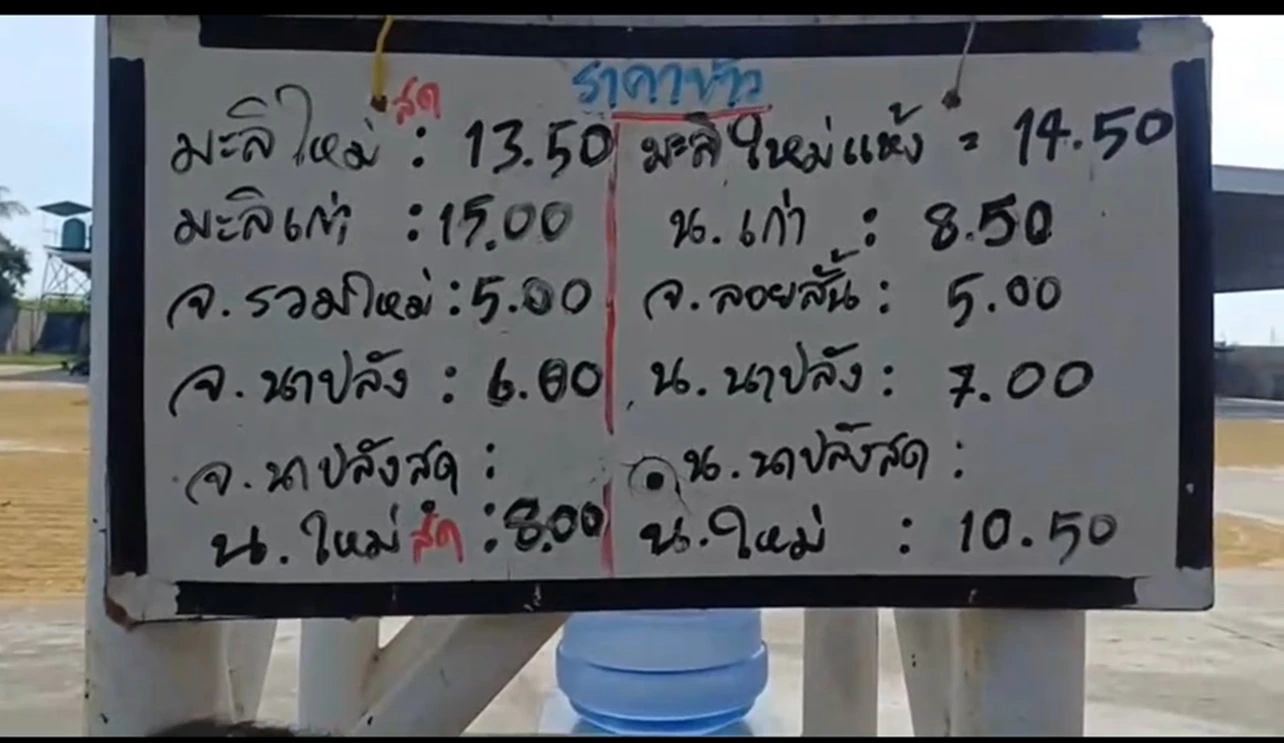 ราคาข้าว
มะลิใหม่สด : 13.50
มะลิเก่า : 15.00
จ.รวมใหม่ : 5.00
จ.นาปลัง : 6.00
จ.นาปลังสด :
น.ใหม่สด : 8.00
มะลิใหม่แห้ง = 14.50
น.เก่า : 8.50
จ.ลอยสั้น : 5.00
น.นาปลัง : 7.00
น.นาปลังสด :
น.ใหม่ : 10.50